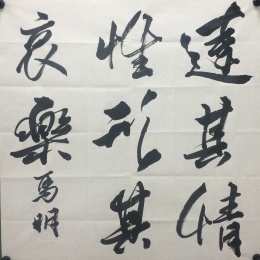 達其情
性形其
哀樂馬明